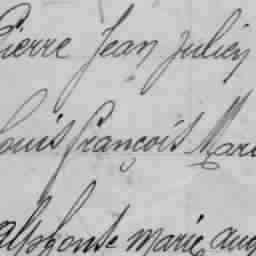 Pierre Jean Julien
Louis François Mari
alphonse marie aug